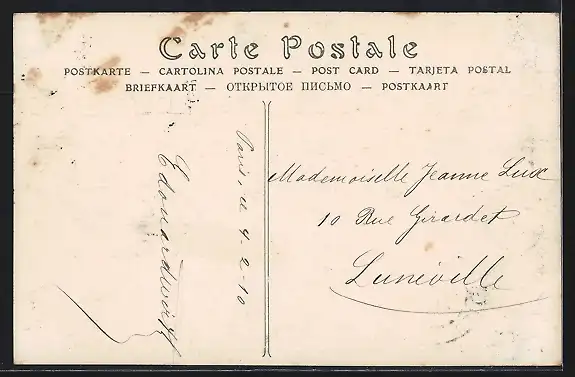 Carte Postale
POSTKARTE — CARTOLINA POSTALE — POST CARD — TARJETA POSTAL
BRIEFKAART — ОТКРЫТОЕ ПИСЬМО — POSTKAART
Paris, 4-2-10
Mademoiselle Jeanne Lux
10 Rue Girardet
Lunéville